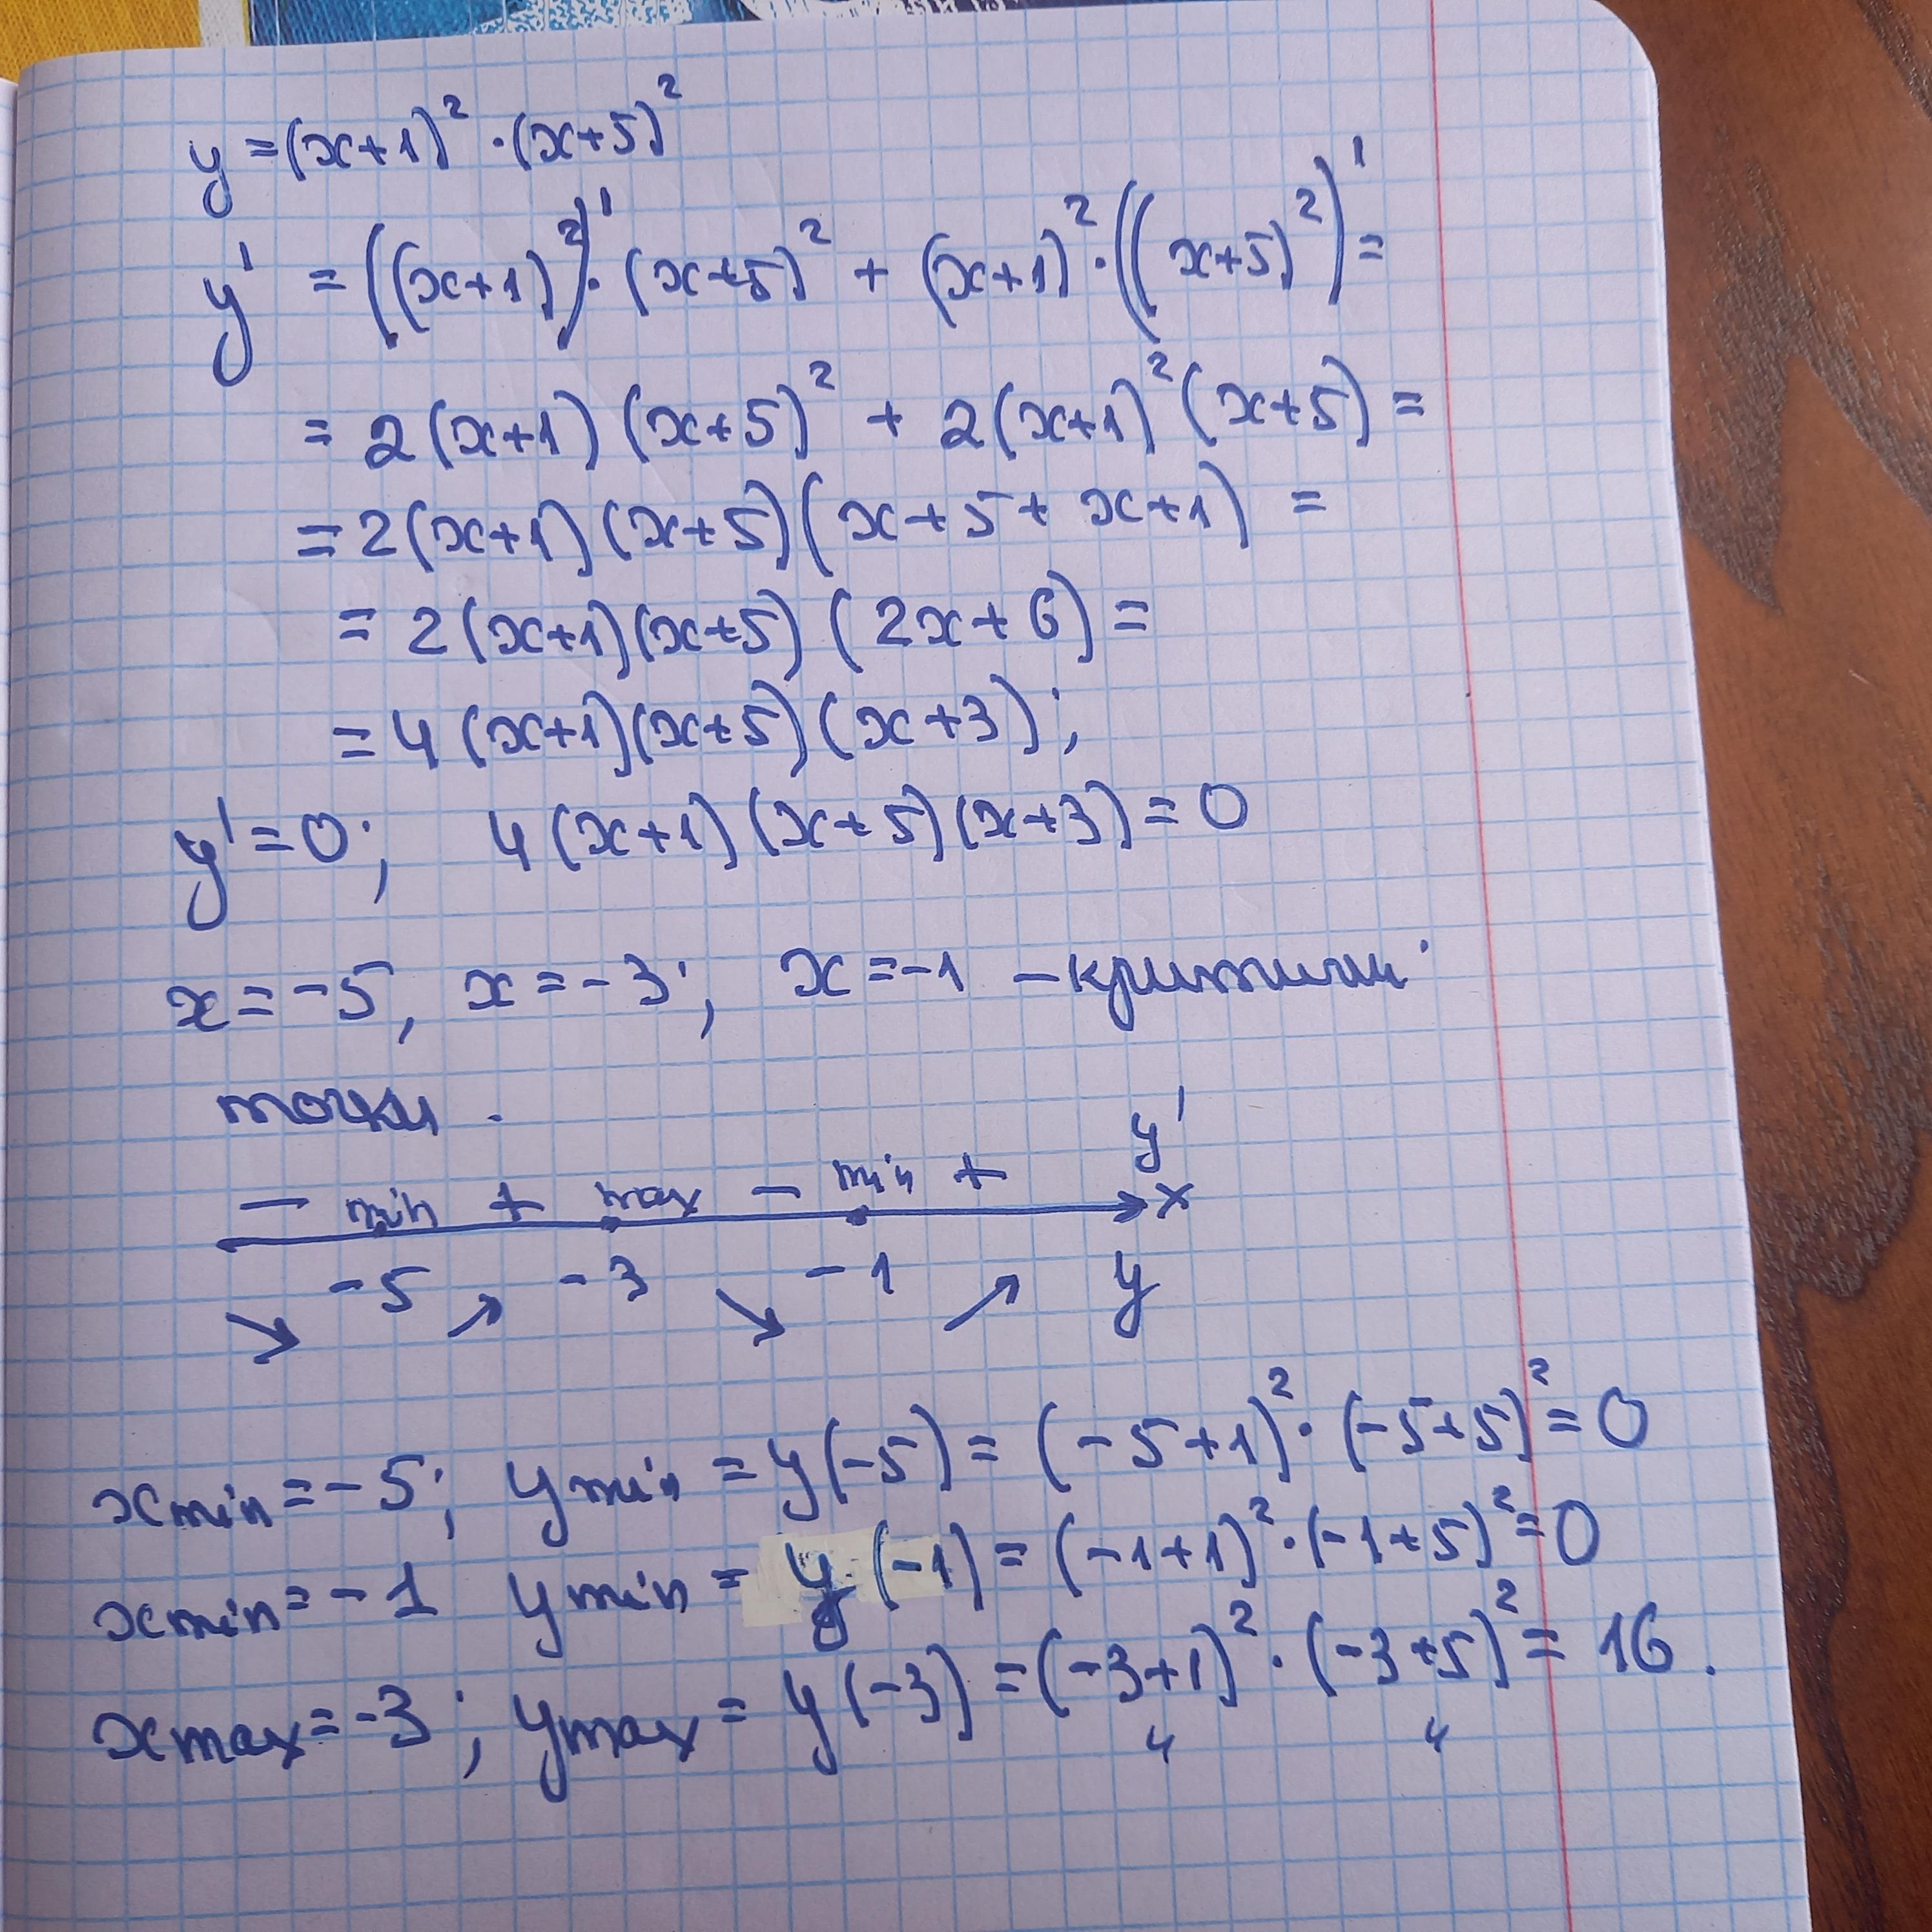 y = (x+1)² · (x+5)²
y' = ((x+1)²)' · (x+5)² + (x+1)² · ((x+5)²)' =
= 2(x+1)(x+5)² + 2(x+1)²(x+5) =
= 2(x+1)(x+5)(x+5+x+1) =
= 2(x+1)(x+5)(2x+6) =
= 4(x+1)(x+5)(x+3);
y' = 0; 4(x+1)(x+5)(x+3) = 0
x = -5, x = -3; x = -1 -
точки.
y'
- min + max - min + x
-5 -3 -1 y
↘ ↗ ↘ ↗
xmin = -5; ymin = y(-5) = (-5+1)² · (-5+5)² = 0
xmin = -1 ymin = y(-1) = (-1+1)² · (-1+5)² = 0
xmax = -3; ymax = y(-3) = (-3+1)² · (-3+5)² = 16.
4 4